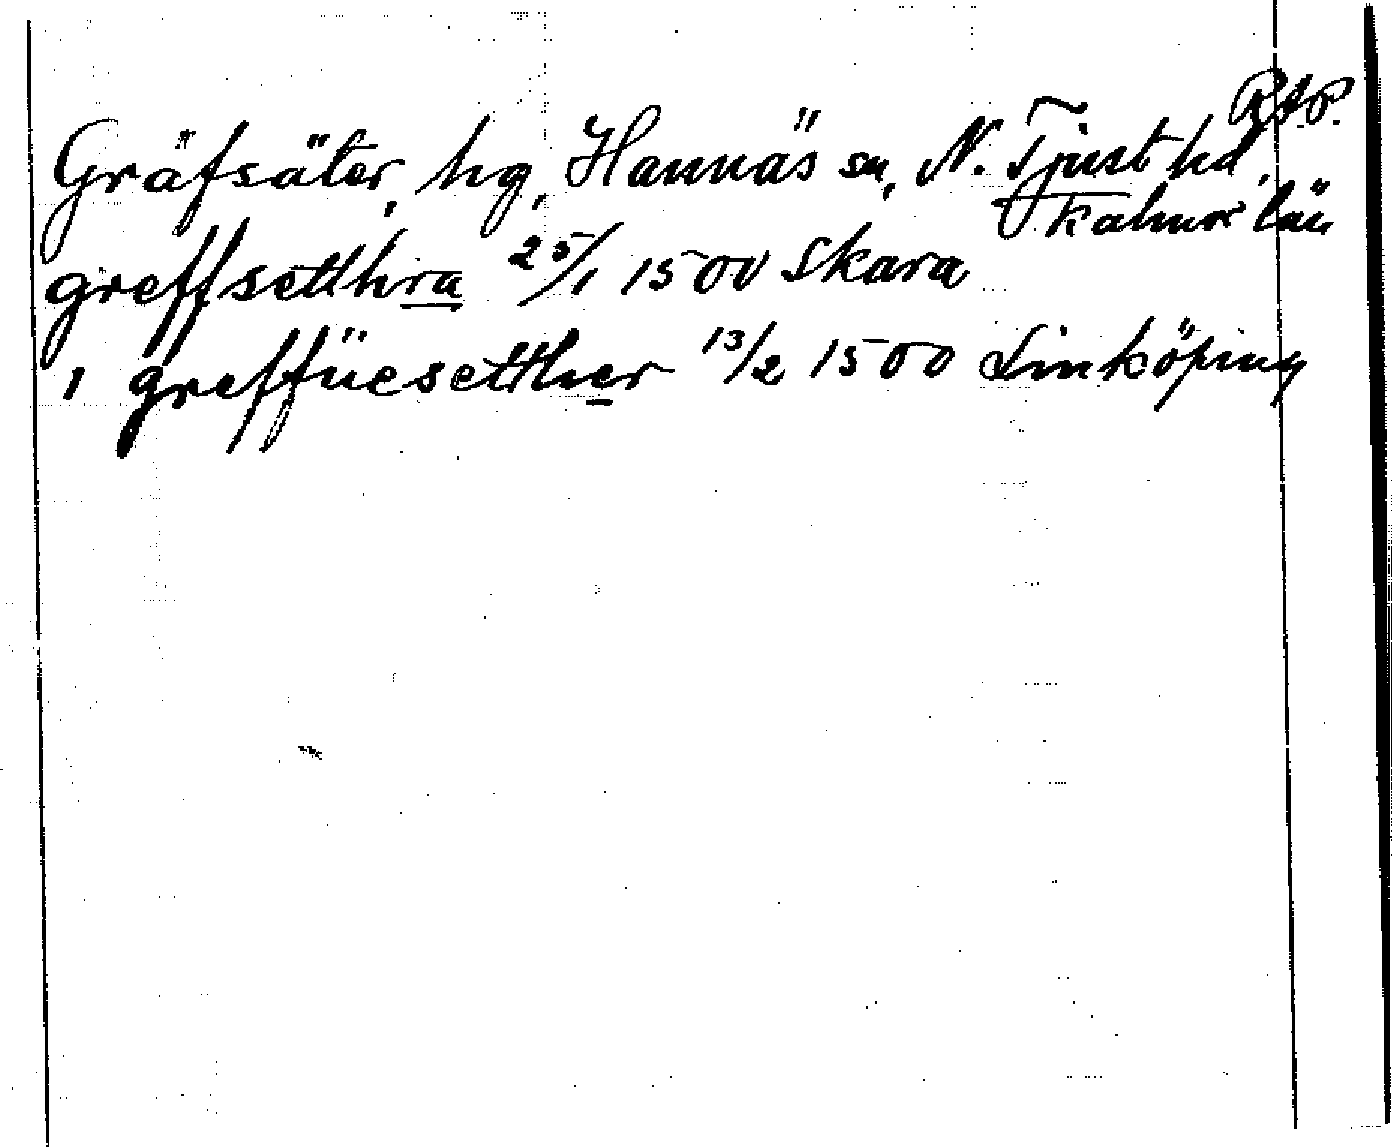 RAP.
Gräfsäter, hg, Hannäs sn, N. Tjust hd,
Kalmar län
greffsetthra 25/1 1500 Skara
i greffüesetther 13/2 1500 Linköping